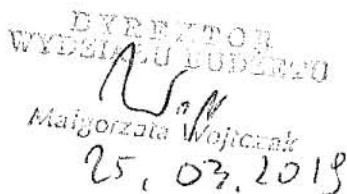 DYREKTOR
WYDZIAŁU BUDŻETU
Małgorzata Wojtczak
25. 03. 2019